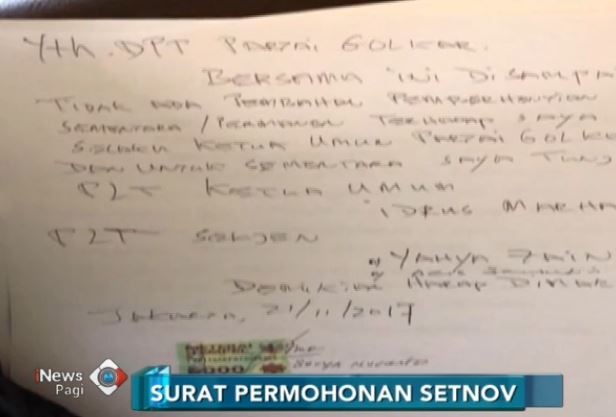 Yth. DPT PARTAI GOLKAR.
BERSAMA INI DISAMPAI
TIDAK ADA PEMBAHASAN PEMBERHENTIAN
SEMENTARA / PERMANEN TERHADAP SAYA
SELAKU KETUA UMUM PARTAI GOLKA
DAN UNTUK SEMENTARA SAYA TUNJ
PLT KETUA UMUM
IDRUS MARHA
PLT SEKJEN
YAHYA ZAIN
DEMIKIAN HARAP DIMAK
Jakarta, 21/11/2017
6000
Setya Novanto
iNews
Pagi
SURAT PERMOHONAN SETNOV